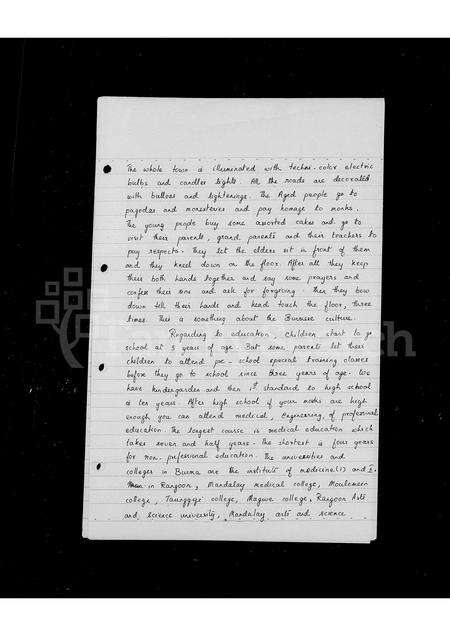 The whole town is illuminated with techni-color electric
bulbs and candles lights. All the roads are decorated
with balloos and lightenings. The Aged people go to
pagodas and monasteries and pay homage to monks.
The young people buy some assorted cakes and go to
visit their parents, grand parents and their teachers to
pay respects. They let the elders sit in front of them
and they kneel down on the floor. After all they keep
their both hands together and say some prayers and
confess their sins and ask for forgiving. Then they bow
down till their hands and head touch the floor, three
times. This is something about the Burmese culture.
Regarding to education, children start to go
school at 5 years of age. But some parents let their
children to attend pre-school special training classes
before they go to school since three years of age. We
have kindergarden and then 1st standard to high school
is ten years. After high school if your marks are high
enough you can attend medical, Engineering, of professional
education. The longest course is medical education which
takes seven and half years. The shortest is four years
for non-professional education. The universities and
colleges in Burma are the institute of medicine (1) and
in Rangoon, Mandalay medical college, Moulemein
college, Taunggyi college, Magwe college, Rangoon Arts
and science university, Mandalay arts and science